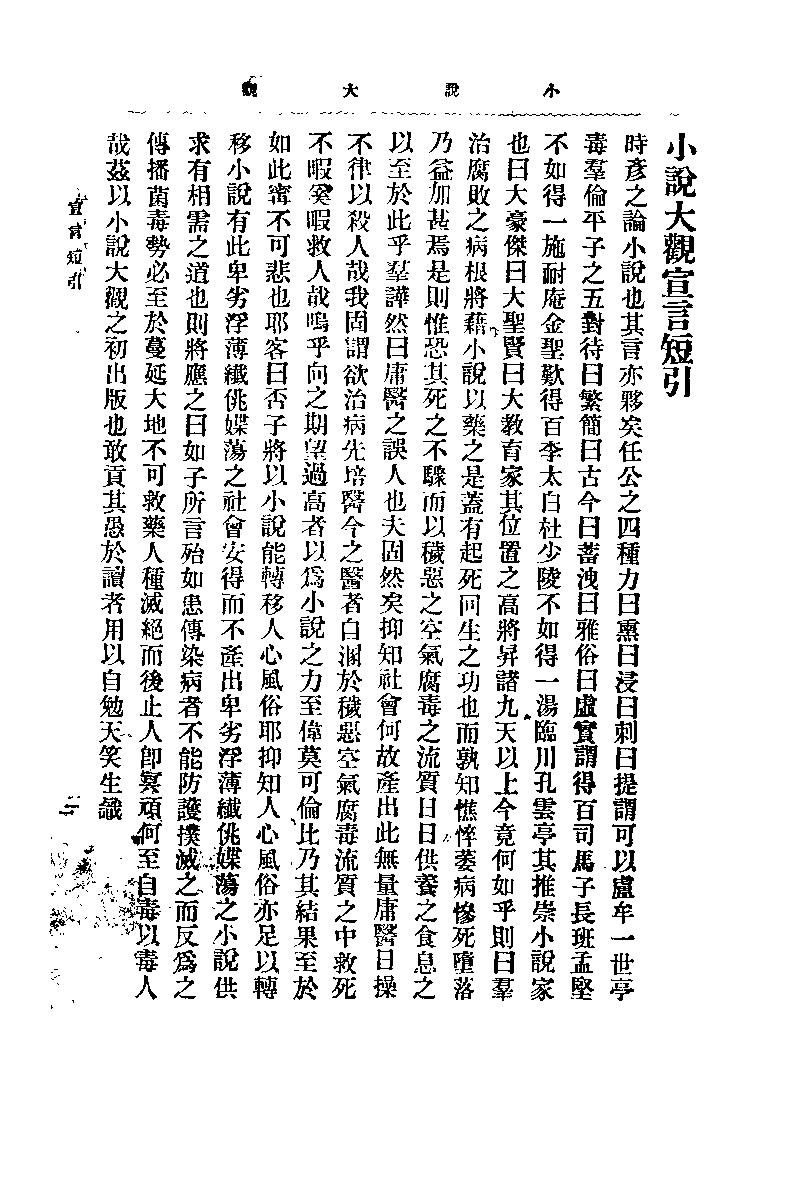 小說大觀
小說大觀宣言短引
時彥之論小說也其言亦夥矣任公之四種力曰熏曰浸曰刺曰提謂可以盧牟一世亭
毒羣倫平子之五對待曰繁簡曰古今曰蓄洩曰雅俗曰虛實謂得百司馬子長班孟堅
不如得一施耐庵金聖歎得百李太白杜少陵不如得一湯臨川孔雲亭其推崇小說家
也曰大豪傑曰大聖賢曰大教育家其位置之高將昇諸九天以上今竟何如乎則曰羣
治腐敗之病根將藉小說以藥之是蓋有起死回生之功也而孰知憔悴萎病慘死墮落
乃益加甚焉是則惟恐其死之不驟而以穢惡之空氣腐毒之流質日日供養之食息之
以至於此乎羣譁然曰庸醫之誤人也夫固然矣抑知社會何故產出此無量庸醫日操
不律以殺人哉我固謂欲治病先培醫今之醫者自溷於穢惡空氣腐毒流質之中救死
不暇奚暇救人哉嗚乎向之期望過高者以爲小說之力至偉莫可倫比乃其結果至於
如此甯不可悲也耶客曰否子將以小說能轉移人心風俗耶抑知人心風俗亦足以轉
移小說有此卑劣浮薄纖佻媟蕩之社會安得而不產出卑劣浮薄纖佻媟蕩之小說供
求有相需之道也則將應之曰如子所言殆如患傳染病者不能防護撲滅之而反爲之
傳播菌毒勢必至於蔓延大地不可救藥人種滅絕而後止人即冥頑何至自毒以毒人
哉茲以小說大觀之初出版也敢貢其愚於讀者用以自勉天笑生識
宣言短引
二